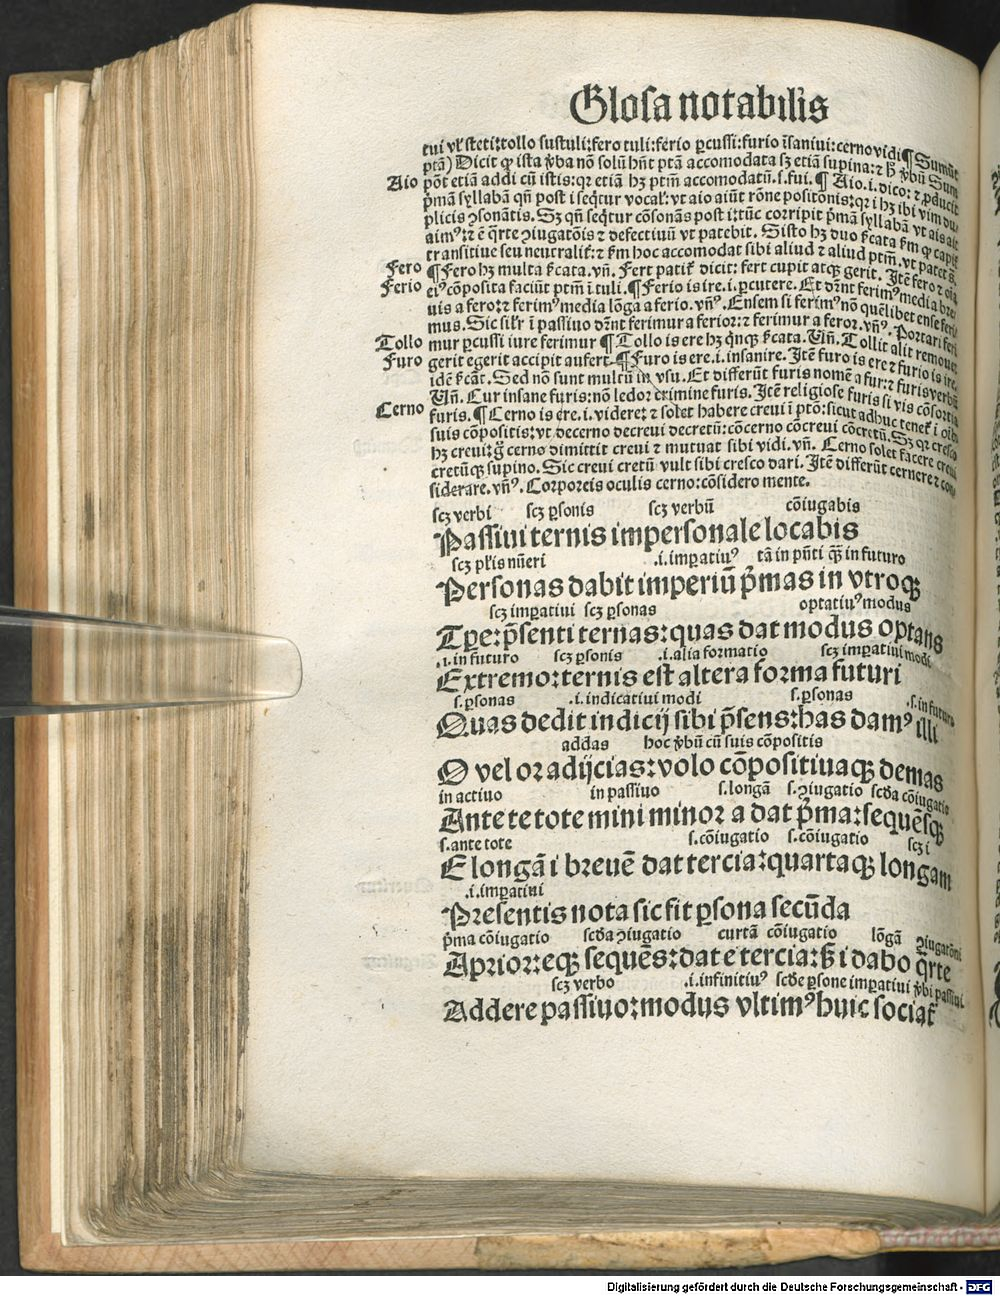 Glosa notabilis
tui vl' steti: tollo sustuli: fero tuli: ferio ꝑcussi: furio īsaniui: cerno vidi ¶ Sumūt
ptā) Dicit ꝙ ista v̄ba nō solū hn̄t ptā accomodata sꝫ etiā supina: ⁊ h̄ v̄bū Sum
Aio pōt etiā addi cū istis: qꝛ etiā hꝫ ptm̄ accomodatū. s. fui. ¶ Aio. i. dico: ⁊ ꝓducit
pͥmā syllabā qn̄ post i seqͥtur vocal': vt aio aiūt rōne positōnis: qꝛ i hꝫ ibi vim du/
plicis ↄsonātis. Sꝫ qn̄ seqͥtur cōsonās post i: tūc corripit pͥmā syllabā vt ais ait
aimꝰ: ⁊ ē qͣrte ↄiugatōis ⁊ defectiuū vt patebit. Sisto hꝫ duo scͣta scͫ ꝙ capit̄
transitiue seu neutralit̄: ⁊ scͫ hoc accomodat sibi aliud ⁊ aliud ptm̄. vt patet
Fero ¶ Fero hꝫ multa scͣta. vn̄. Fert patit̄ dicit: fert cupit atqꝫ gerit. Itē fero ⁊ oīa
Ferio eiꝰ cōposita faciūt ptm̄ ī tuli. ¶ Ferio is ire. i. ꝑcutere. Et dr̄nt ferimꝰ media bre/
uis a fero: ⁊ ferimꝰ media lōga a ferio. vn̄ꝰ. Ensem si ferimꝰ nō quēlibet ense feri/
mus. Sic sil'r ī passiuo dr̄nt ferimur a ferior: ⁊ ferimur a feror. vn̄ꝰ. Portari feri
Tollo mur ꝑcussi iure ferimur ¶ Tollo is ere hꝫ qͥnqꝫ scͣta. Vn̄. Tollit alit remouet
Furo gerit egerit accipit aufert. ¶ Furo is ere. i. insanire. Itē furo is ere ⁊ furio is ire,
idē scͣt. Sed nō sunt multū in vsu. Et differūt furis nomē a fur: ⁊ furis verbū
Vn̄. Cur insane furis: nō ledor crimine furis. Itē religiose furis si vis cōsortia
Cerno furis. ¶ Cerno is ere. i. videre: ⁊ solet habere creui ī ptō: sicut adhuc tenet̄ i oībꝰ
suis cōpositis: vt decerno decreui decretū: cōcerno cōcreui cōcretū. Sꝫ qꝛ cresco
hꝫ creui: gͦ cerno dimittit creui ⁊ mutuat sibi vidi. vn̄. Cerno solet facere creui
cretūqꝫ supino. Sic creui cretū vult sibi cresco dari. Itē differūt cernere ⁊ con/
siderare. vn̄ꝰ. Corporeis oculis cerno: cōsidero mente.
scꝫ verbi scꝫ ꝑsonis scꝫ verbū cōiugabis
Passiui ternis impersonale locabis
scꝫ pl'is nūeri .i. imꝑatiuꝰ tā in pn̄ti qͣꝫ in futuro
Personas dabit imperiū pͥmas in vtroqꝫ
scꝫ imꝑatiui scꝫ ꝑsonas optatiuꝰ modus
Tꝑe: p̄senti ternas: quas dat modus optans
.i. in futuro scꝫ ꝑsonis .i. alia formatio scꝫ imꝑatiui modi
Extremo: ternis est altera forma futuri
s. ꝑsonas .i. indicatiui modi s. ꝑsonas .s. in futuro
Quas dedit indicij sibi p̄sens: has damꝰ illi
addas hoc v̄bū cū suis cōpositis
O vel or adijcias: volo cōpositiuaqꝫ demas
in actiuo in passiuo s. longā s. ↄiugatio scd̄a cōiugatio
Ante te tote mini minor a dat pͥma: sequēsqꝫ
s. ante tote s. cōiugatio s. cōiugatio scꝫ i
E longā i breuē dat tercia: quartaqꝫ longam
.i. imꝑatiui
Presentis nota sic fit ꝑsona secūda
pͥma cōiugatio scd̄a ↄiugatio curtā cōiugatio lōgā ↄiugatōni
A prior: eqꝫ sequēs: dat e tercia: sꝫ i dabo qͣrte
scꝫ verbo .i. infinitiuꝰ scd̄e ꝑsone imꝑatiui v̄bi passiui
Addere passiuo: modus vltimꝰ huic sociat̄
Digitalisierung gefördert durch die Deutsche Forschungsgemeinschaft - DFG